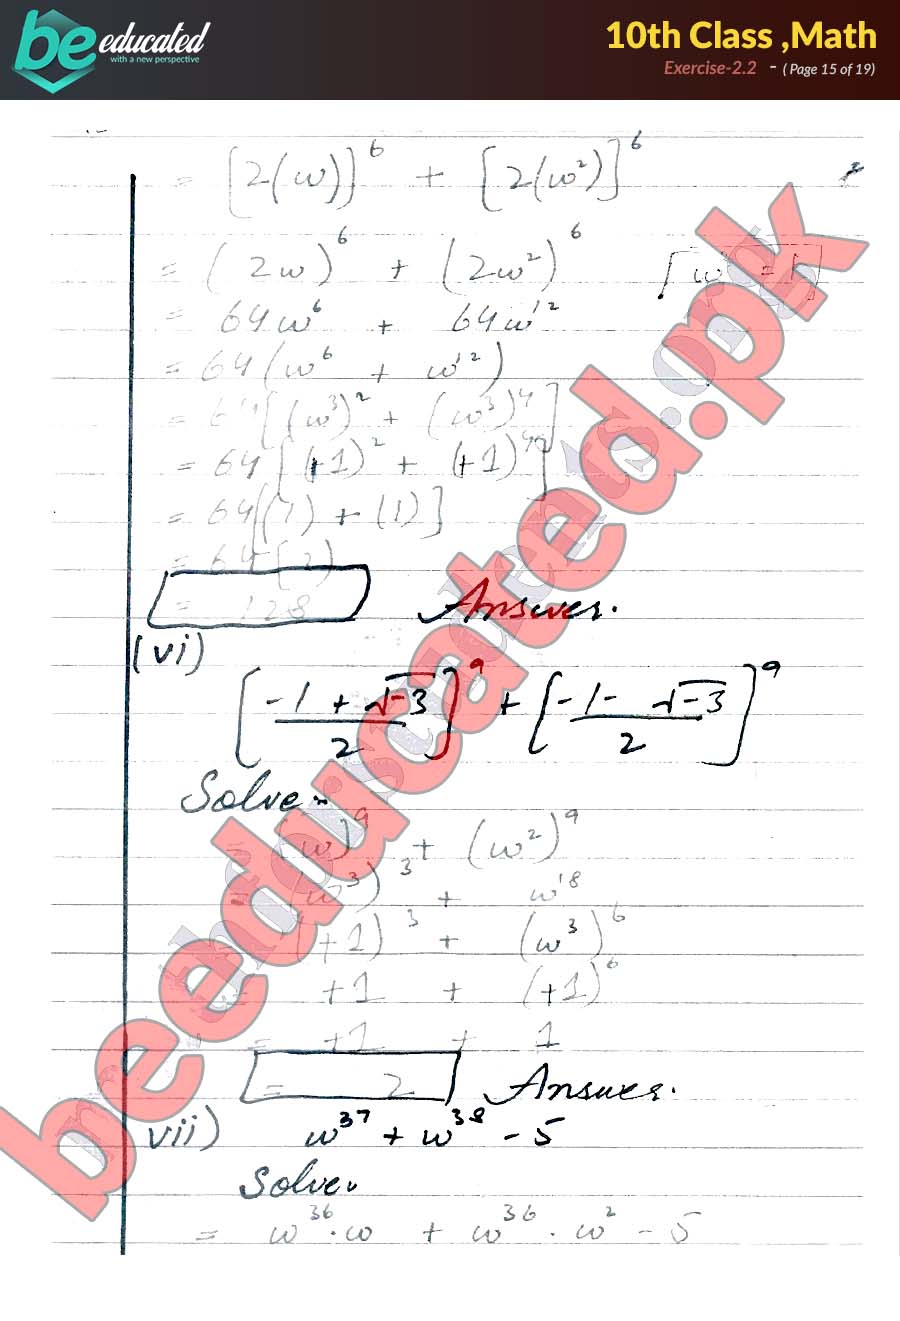 be educated
with a new perspective
10th Class ,Math
Exercise-2.2 - ( Page 15 of 19)
= [2(ω)]⁶ + [2(ω²)]⁶
= (2ω)⁶ + (2ω²)⁶ [ω³ = 1]
= 64ω⁶ + 64ω¹²
= 64(ω⁶ + ω¹²)
= 64[(ω³)² + (ω³)⁴]
= 64[(+1)² + (+1)⁴]
= 64[(1) + (1)]
= 64(2)
= 128 Answer.
(vi)
[(-1 + √-3)/2]⁹ + [(-1 - √-3)/2]⁹
Solve:-
= (ω)⁹ + (ω²)⁹
= (ω³)³ + ω¹⁸
= (+1)³ + (ω³)⁶
= +1 + (+1)⁶
= +1 + 1
= 2 Answer.
vii) ω³⁷ + ω³⁸ - 5
Solve.
= ω³⁶ · ω + ω³⁶ · ω² - 5
beeducated.pk